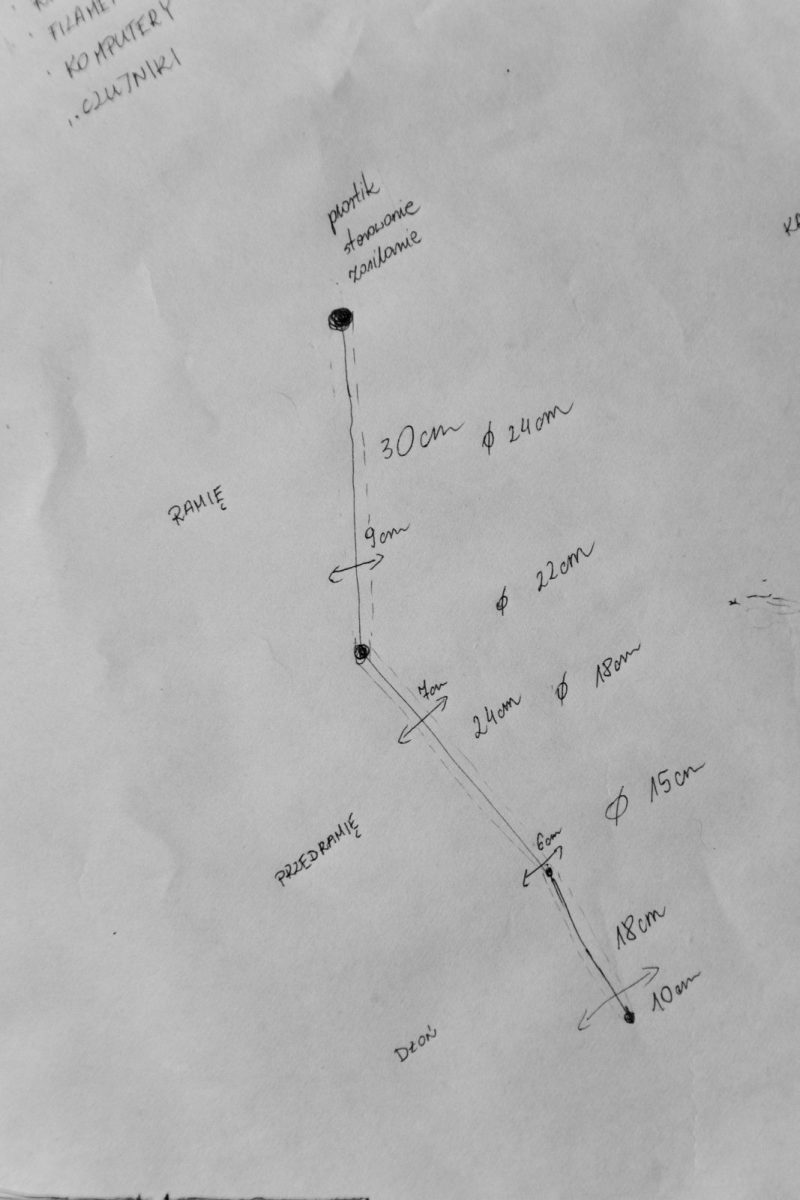 FILAME
· KOMPUTERY
.. CZUJNIKI
plastik
sterowanie
zasilanie
30cm ϕ 24cm
RAMIĘ
9cm
ϕ 22cm
7cm
24cm ϕ 18cm
ϕ 15cm
PRZEDRAMIĘ
6cm
18cm
10cm
DŁOŃ